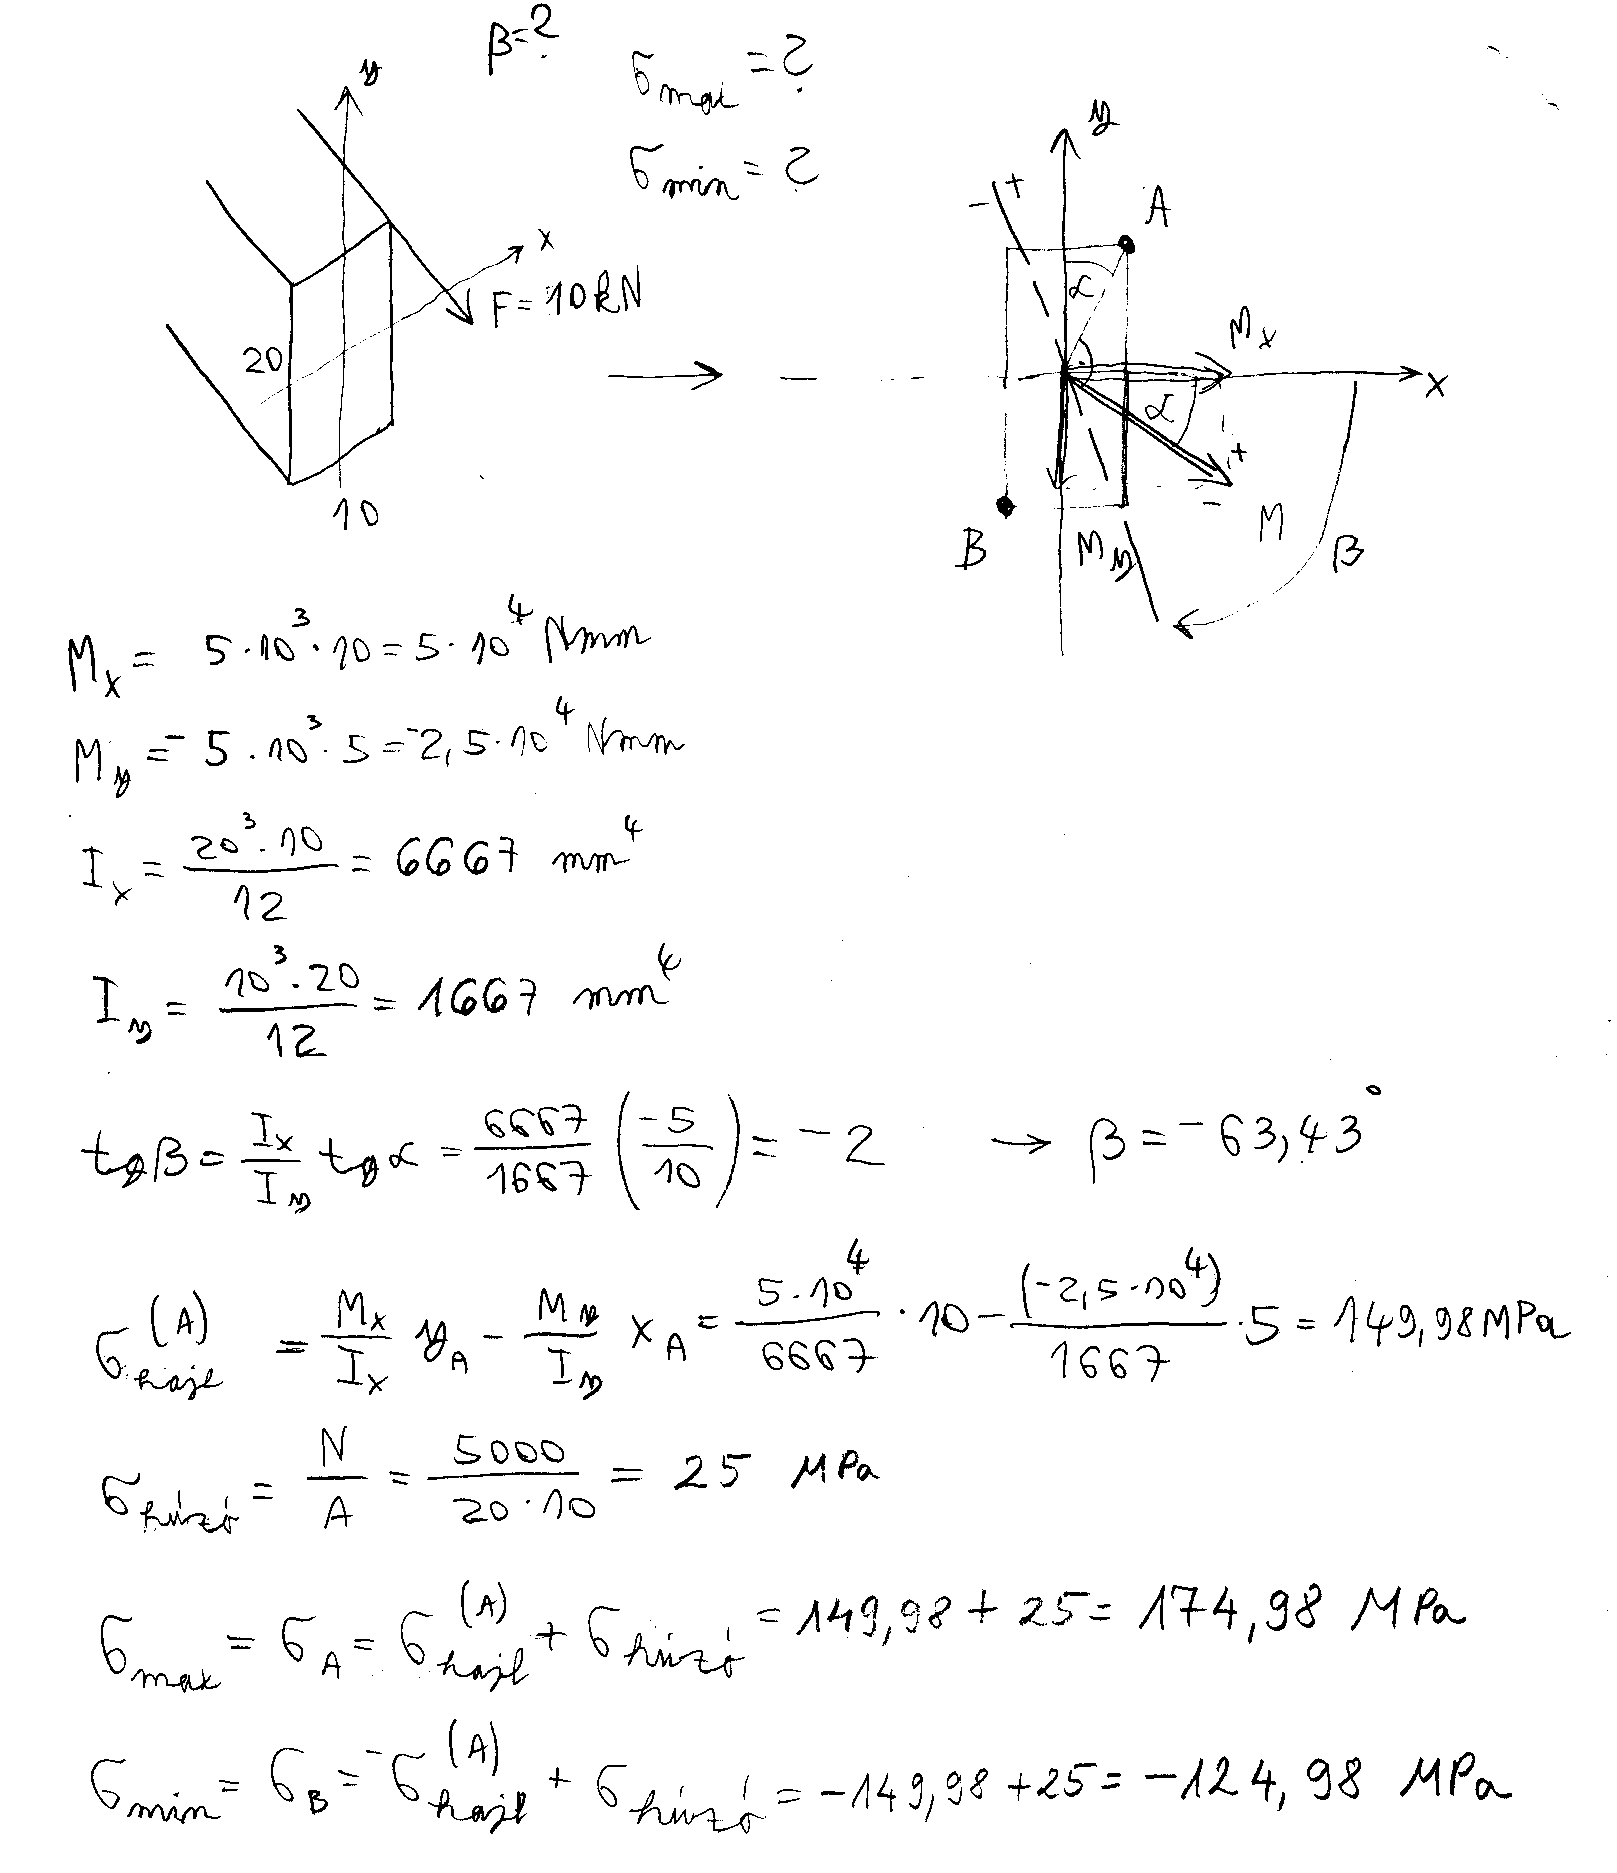 β=?
σmax = ?
σmin = ?
y
x
F = 10kN
20
10
y
A
- +
α
Mx
x
α
+
-
M
B
My
β
Mx = 5·10³·10 = 5·10⁴ Nmm
My = -5·10³·5 = -2,5·10⁴ Nmm
Ix = 20³·10 / 12 = 6667 mm⁴
Iy = 10³·20 / 12 = 1667 mm⁴
tgβ = Ix / Iy tgα = 6667 / 1667 (-5 / 10) = -2 → β = -63,43°
σhajl(A) = Mx / Ix yA - My / Iy xA = 5·10⁴ / 6667 · 10 - (-2,5·10⁴) / 1667 · 5 = 149,98 MPa
σhúzó = N / A = 5000 / 20·10 = 25 MPa
σmax = σA = σhajl(A) + σhúzó = 149,98 + 25 = 174,98 MPa
σmin = σB = -σhajl(A) + σhúzó = -149,98 + 25 = -124,98 MPa